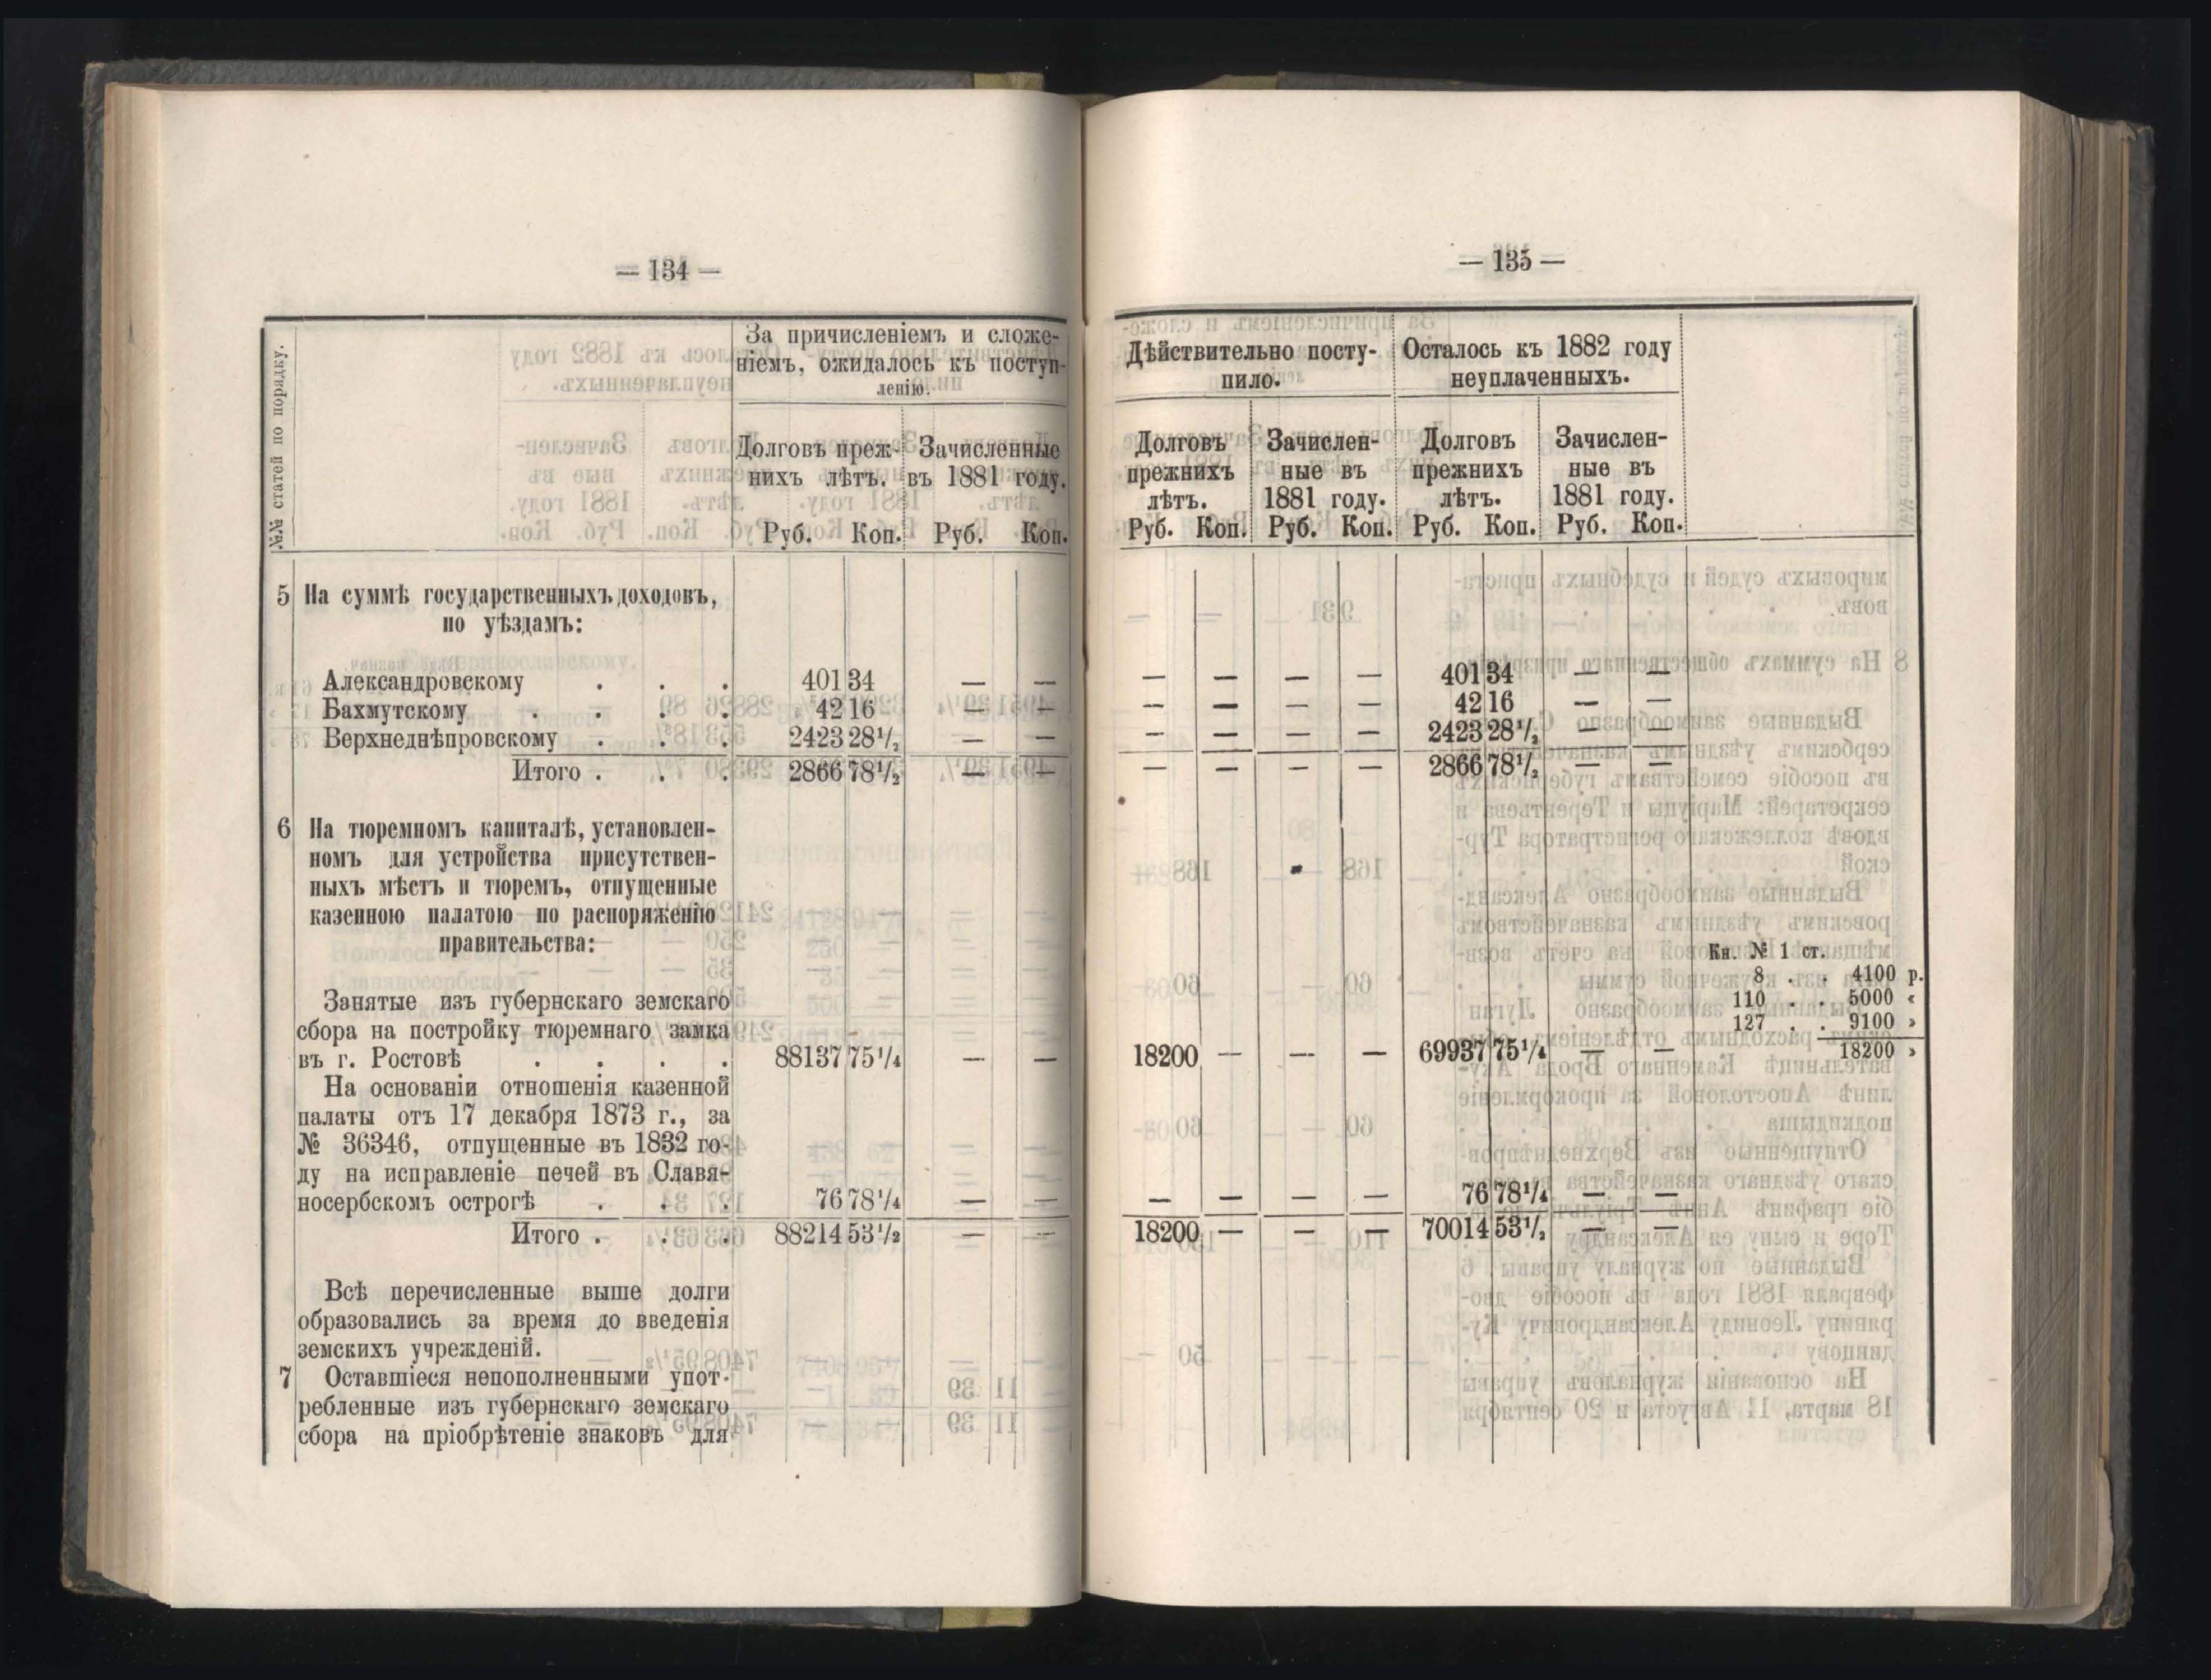 — 134 —
№№ статей по порядку.
За причисленіемъ и сложе-
ніемъ, ожидалось къ поступ-
ленію.
Долговъ преж-
нихъ лѣтъ.
Зачисленные
въ 1881 году.
Руб. Коп. Руб. Коп.
5 На суммѣ государственныхъ доходовъ,
по уѣздамъ:
Александровскому . . . 401 34 — —
Бахмутскому . . . . 42 16 — —
Верхнеднѣпровскому . . . 2423 28½ — —
Итого . . . 2866 78½ — —
6 На тюремномъ капиталѣ, установлен-
номъ для устройства присутствен-
ныхъ мѣстъ и тюремъ, отпущенные
казенною палатою по распоряженію
правительства:
Занятые изъ губернскаго земскаго
сбора на постройку тюремнаго замка
въ г. Ростовѣ . . . . 88137 75¼ — —
На основаніи отношенія казенной
палаты отъ 17 декабря 1873 г., за
№ 36346, отпущенные въ 1832 го-
ду на исправленіе печей въ Славя-
носербскомъ острогѣ . . . 76 78¼ — —
Итого . . . 88214 53½ — —
Всѣ перечисленные выше долги
образовались за время до введенія
земскихъ учрежденій.
7 Оставшіеся непополненными упот-
ребленные изъ губернскаго земскаго
сбора на пріобрѣтеніе знаковъ для
— 135 —
Дѣйствительно посту-
пило.
Осталось къ 1882 году
неуплаченныхъ.
Долговъ
прежнихъ
лѣтъ.
Зачислен-
ные въ
1881 году.
Долговъ
прежнихъ
лѣтъ.
Зачислен-
ные въ
1881 году.
Руб. Коп. Руб. Коп. Руб. Коп. Руб. Коп.
— — — — 401 34 — —
— — — — 42 16 — —
— — — — 2423 28½ — —
— — — — 2866 78½ — —
Кн. № 1 ст.
8 . . 4100 р.
110 . . 5000 «
127 . . 9100 »
18200 — — — 69937 75¼ — — 18200 »
— — — — 76 78¼ — —
18200 — — — 70014 53½ — —